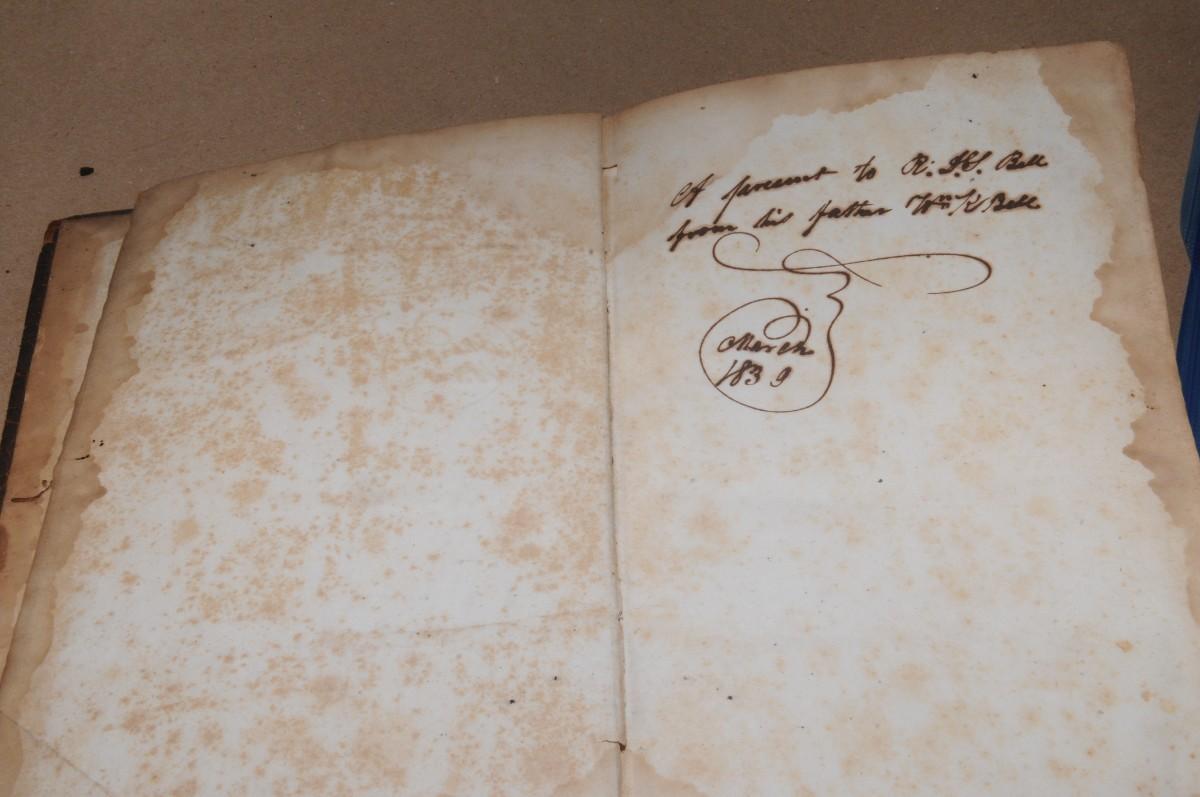 A present to R. Bell
from his father Wm K Bell
March
1839